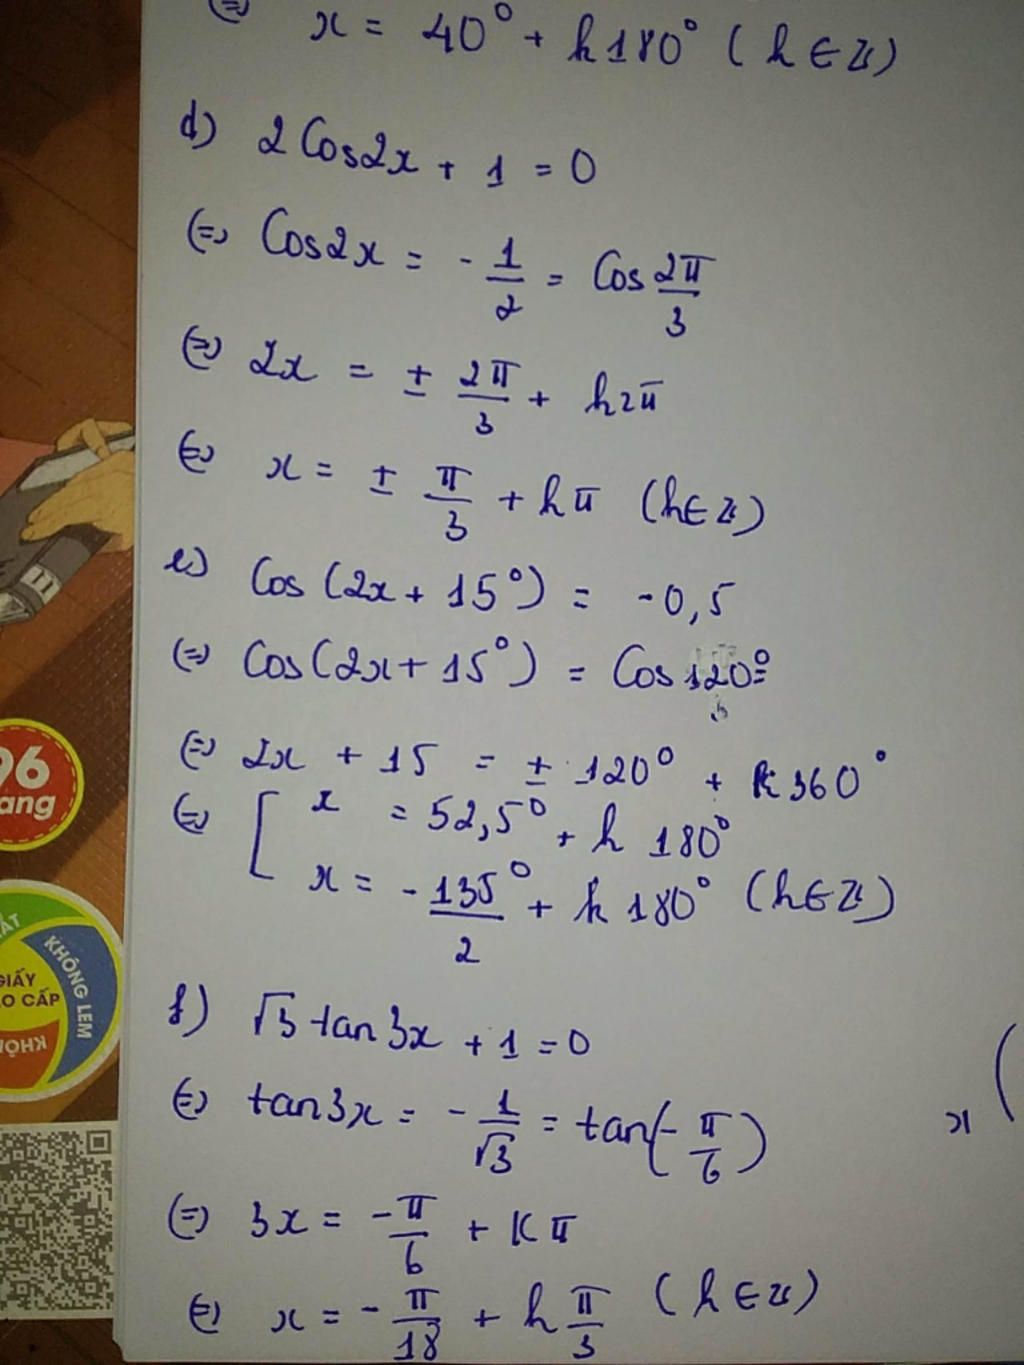 ⇔ x = 40° + k180° (k ∈ Z)
d) 2Cos2x + 1 = 0
⇔ Cos2x = - 1/2 = Cos 2π/3
⇔ 2x = ± 2π/3 + k2π
⇔ x = ± π/3 + kπ (k ∈ Z)
e) Cos (2x + 15°) = -0,5
⇔ Cos(2x + 15°) = Cos 120°
⇔ 2x + 15 = ± 120° + k360°
⇔ [ x = 52,5° + k 180°
x = - 135°/2 + k 180° (k ∈ Z)
f) √3 tan3x + 1 = 0
⇔ tan3x = - 1/√3 = tan(- π/6)
⇔ 3x = - π/6 + Kπ
⇔ x = - π/18 + k π/3 (k ∈ Z)
x (
96
ang
ẤT
KHÔNG LEM
GIẤY
O CẤP
KHÔN